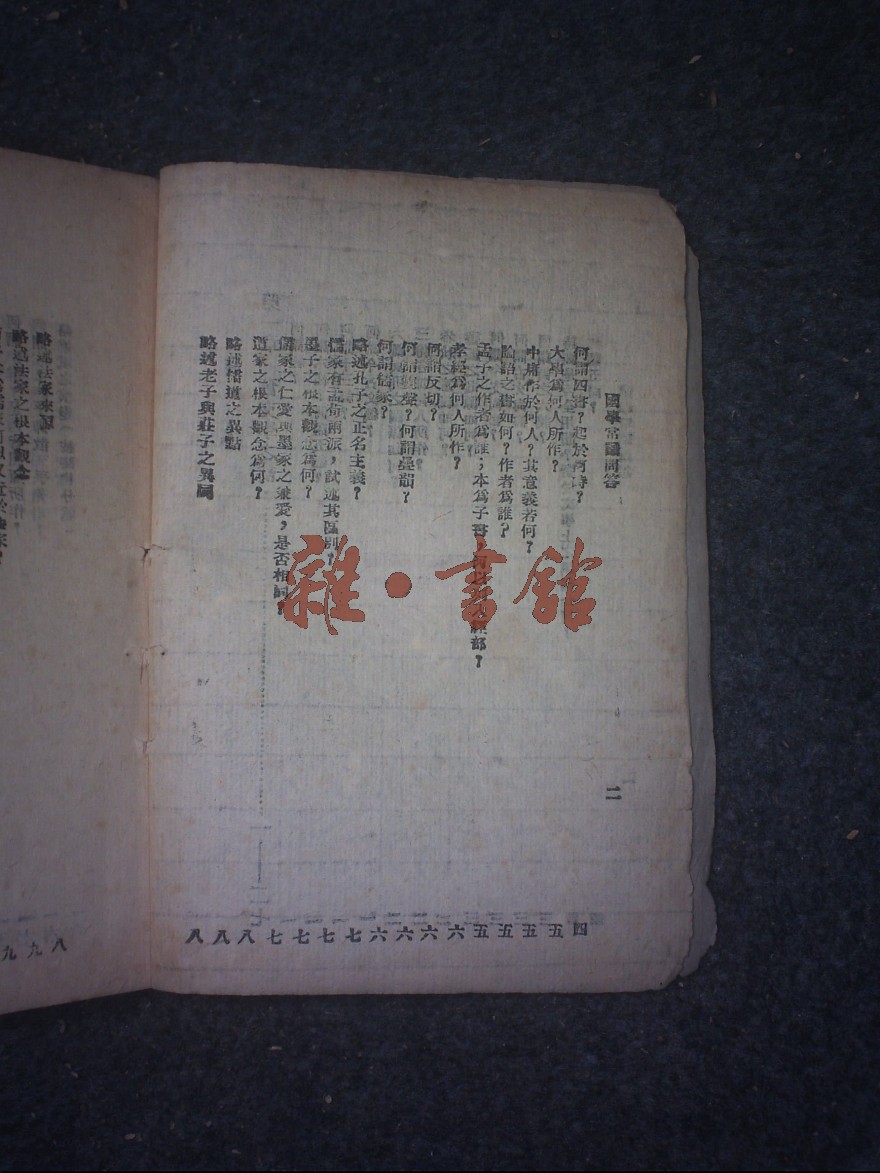 國學常識問答 二
何謂四書？起於何時？ 四
大學爲何人所作？ 五
中庸作於何人？其意義若何？ 五
論語之書如何？作者爲誰？ 五
孟子之作者爲誰；本爲子書，經部？ 五
孝經爲何人所作？ 六
何謂反切？ 六
何謂雙聲？何謂疊韻？ 六
何謂儒家？ 六
略述孔子之正名主義？ 七
儒家有孟荀兩派，試述其區別？ 七
墨子之根本觀念爲何？ 七
儒家之仁愛與墨家之兼愛，是否相同？ 七
道家之根本觀念爲何？ 八
略述儒道之異點 八
略述老子與莊子之異同 八
略述法家來源 八
略述法家之根本觀念 九
九
雜·書館